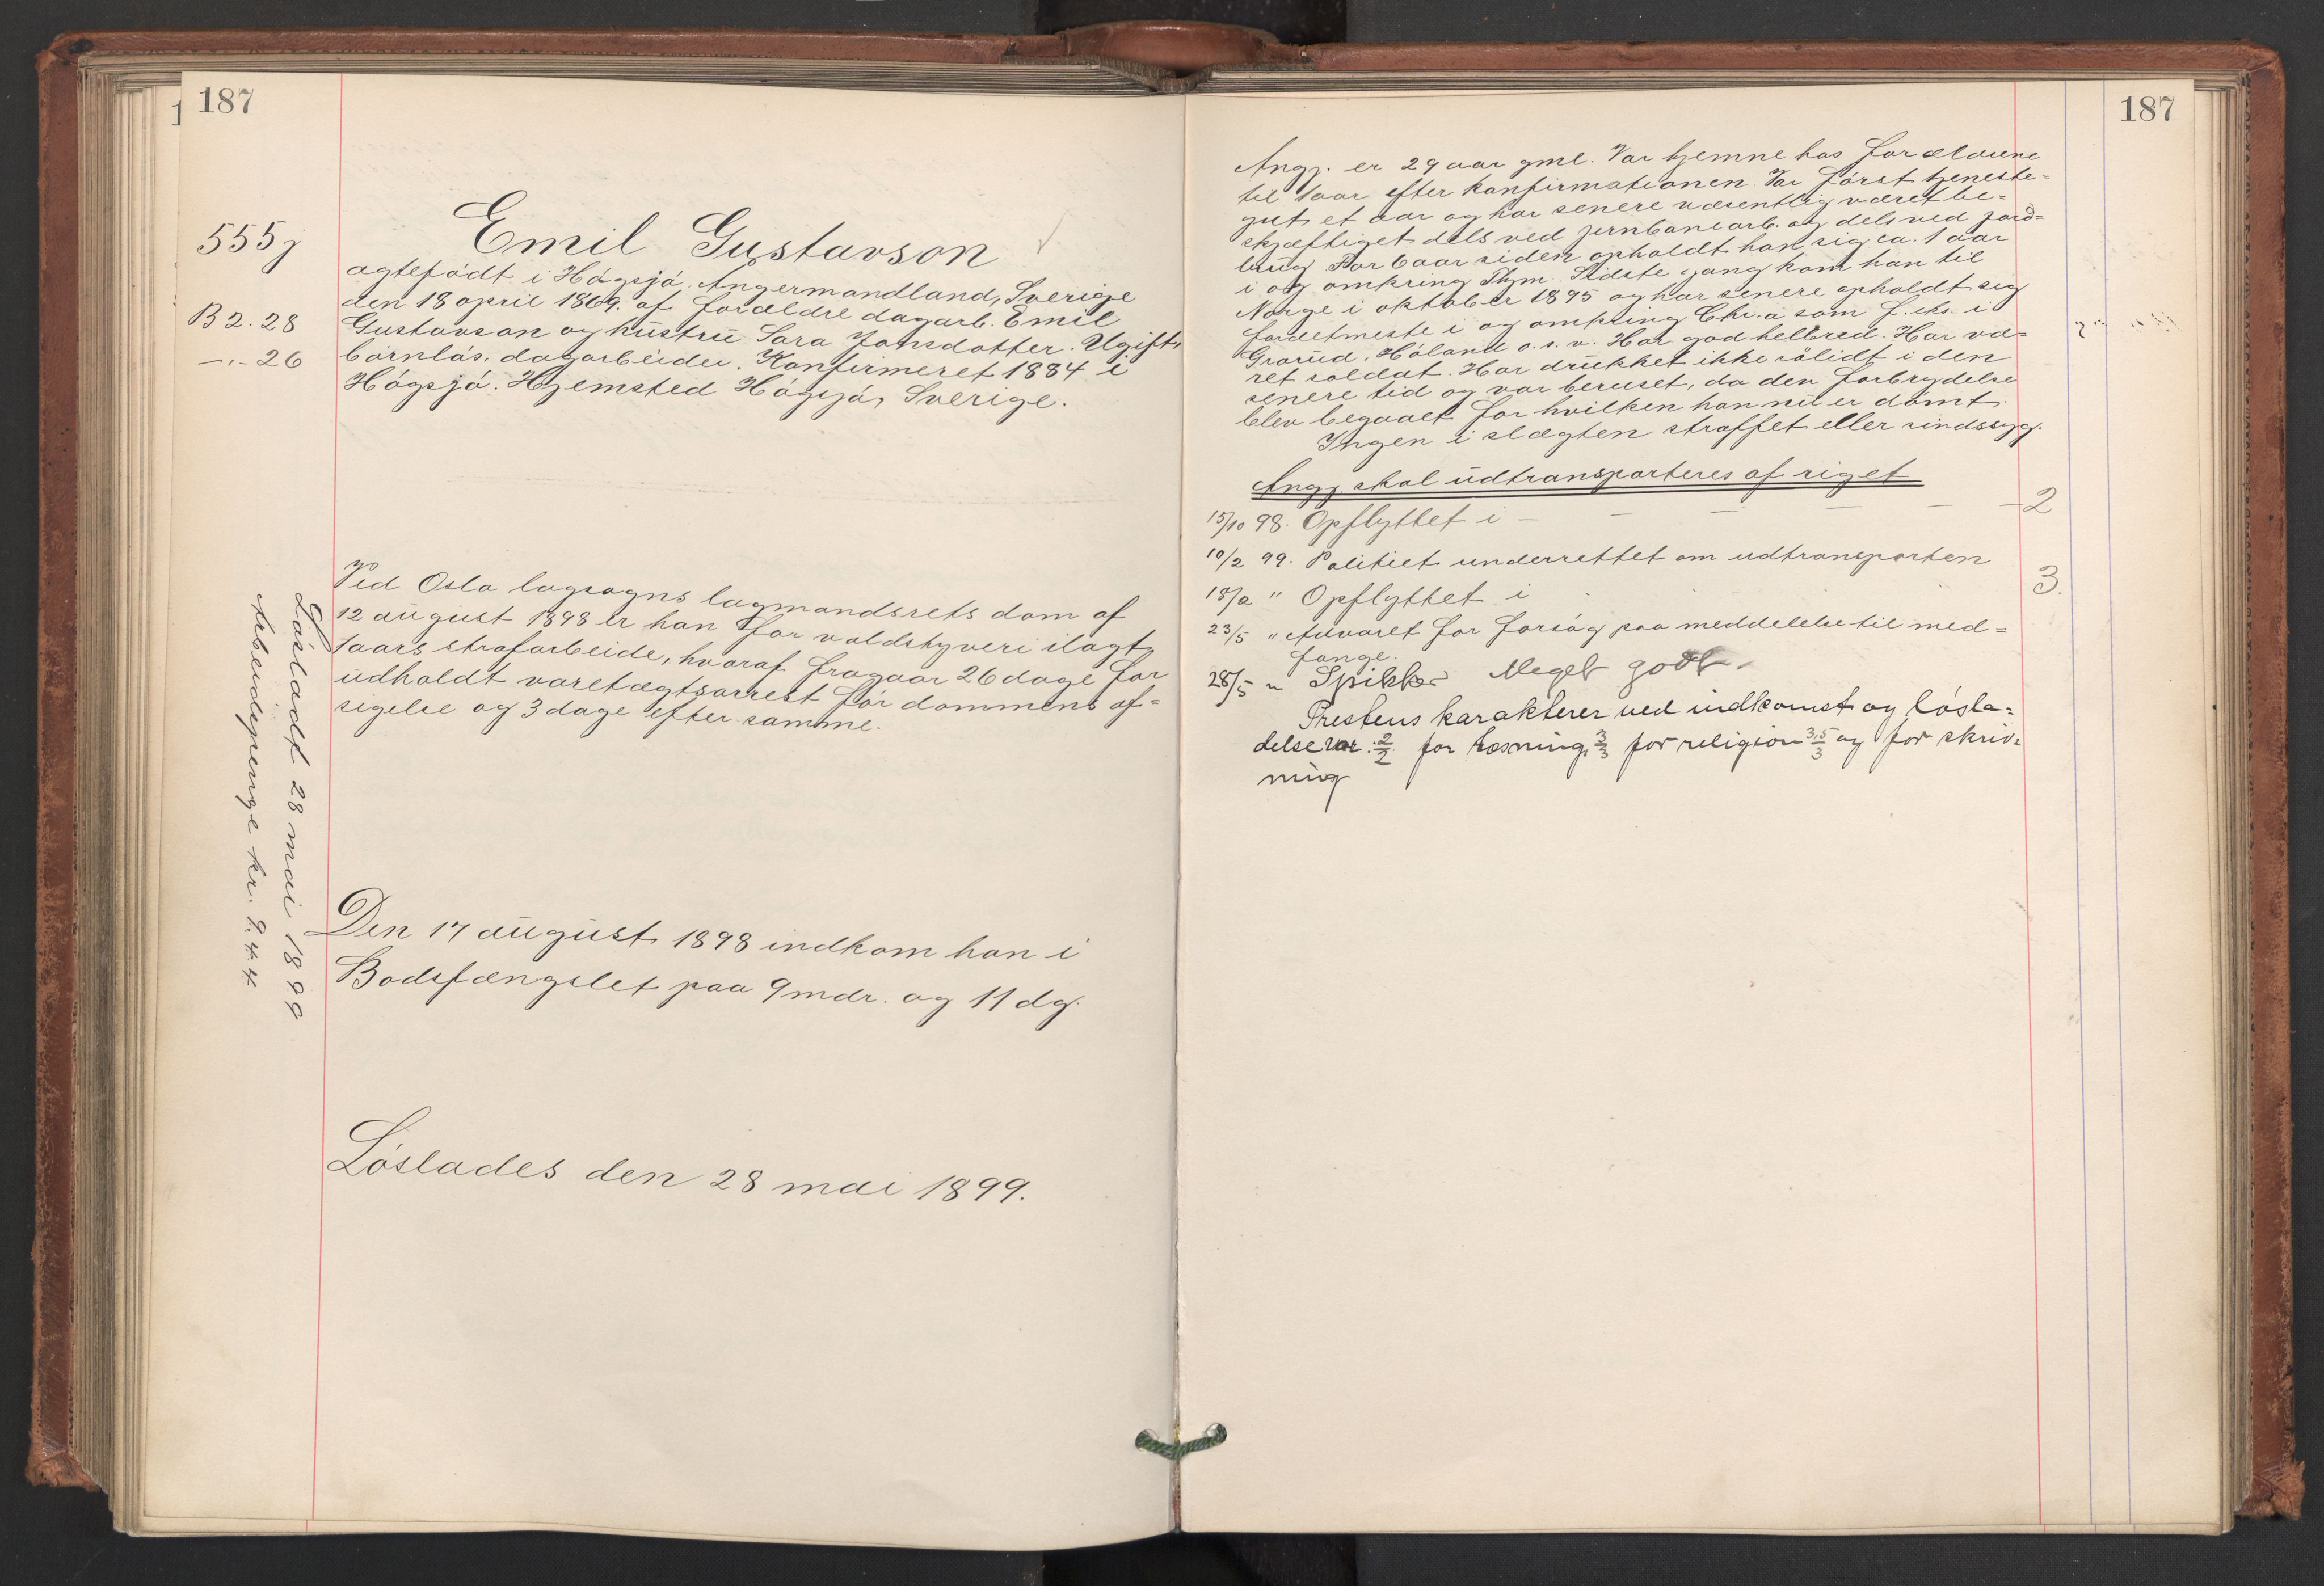 187
555j
B 2. 28
—„— 26
Emil Gustavson
ægtefødt i Högsjö, Ångermandland, Sverige
den 18 april 1869. af forældre dagarb. Emil
Gustavson og hustru Sara Jonsdotter. Ugift,
børnløs, dagarbeider. Konfirmeret 1884 i
Högsjö. Hjemsted Högsjö, Sverige.
Ved Oslo lagsogns lagmandsrets dom af
12 august 1898 er han for voldstyveri ilagt
1 aars strafarbeide, hvoraf fragaar 26 dage for
udholdt varetægtsarrest før dommens af=
sigelse og 3 dage efter samme.
Løsladt 28 mai 1899
Arbeidspenge kr. 9.44
Den 17 august 1898 indkom han i
Bodsfængslet paa 9 mdr. og 11 dg.
Løslades den 28 mai 1899.
187
Angj. er 29 aar gml. Var hjemme hos forældrene
til 1 aar efter konfirmationen. Var først tjeneste=
gut et aar og har senere væsentlig været be=
skjæftiget dels ved jernbanearb. og dels ved jord=
brug. For 6 aar siden opholdt han sig ca. 1 aar
i og omkring Thjm. Sidste gang kom han til
Norge i oktober 1895 og har senere opholdt sig
fordetmeste i og omkring Chr.a som f. eks. i
Grorud, Høland o. s. v. Har god helbred. Har væ=
ret soldat. Har drukket ikke solidt i den
senere tid og var beruset, da den forbrydelse
blev begaaet for hvilken han nu er dømt.
Ingen i slægten straffet eller sindssyg.
Angj. skal udtransporteres af riget
15/10 98. Opflyttet i — — — — — 2
10/2 99. Politiet underrettet om udtransporten
15/2 " Opflyttet i 3.
23/5 " Advaret for forsøg paa meddelelse til med=
fange.
28/5 " Spikker Meget godt.
Prestens karakterer ved indkomst og løsla=
delse var: 2/2 for læsning, 3/3 for religion 3,5/3 og for skriv=
ning